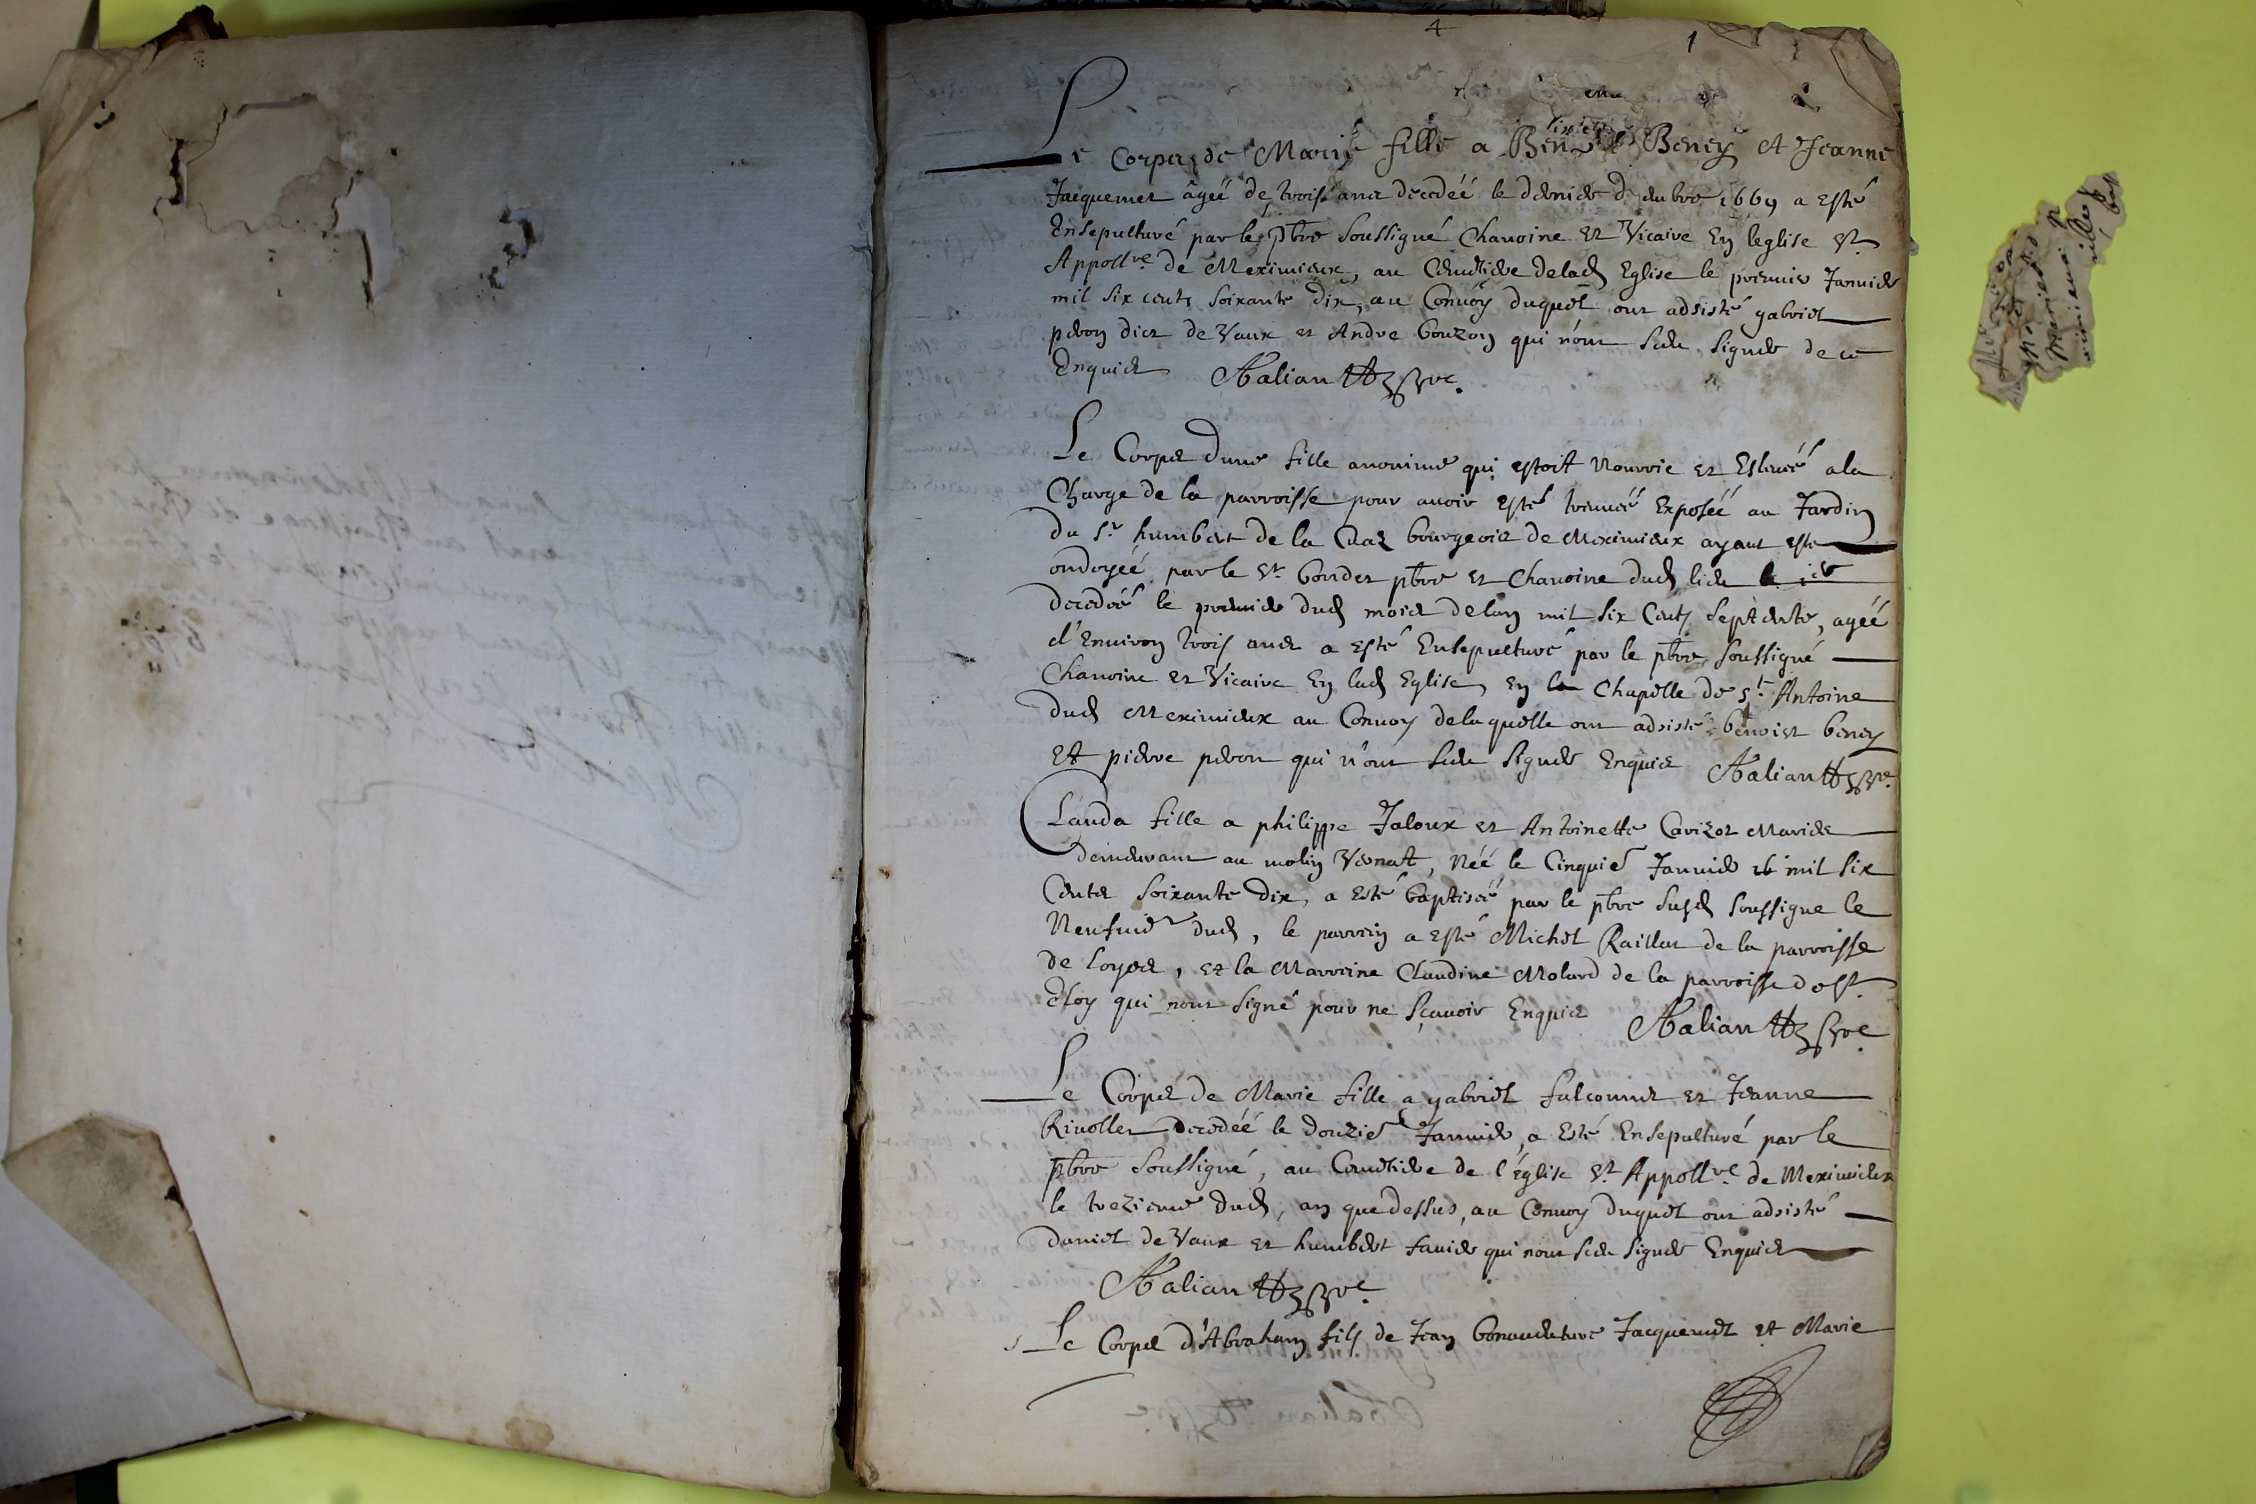 4
1
Le Corps de Marie fille a Benoist Beney et Jeanne
Jacquemet âgéé de trois ans decedéé le dernier decembre 1669 a esté
Ensepulturé par le pbre soussigné Chanoine et Vicaire En leglise St
Appollre de Meximieux, au Cemetiere delad Eglise le premier Janvier
mil six cents soixante dix, au Convoy duquel ont adsisté gabriel
peron dict de Vaux et Andre bouzon qui nont sceu signer de ce
Enquis Aalian
Le Corps dune fille anonime qui estoit Nourrie et Esleuéé ala
Charge de la parroisse pour auoir esté trouuéé Exposéé au Jardin
du Sr humbert de la Cuaz bourgeois de Meximieux ayant esté
ondoyéé par le Sr bordes pbre et Chanoine dud lieu
decedéé le premier dud mois delan mil six Cents septente, agéé
d'Enuiron trois ans a esté Ensepulturé par le pbre soussigné
Chanoine et Vicaire En lad Eglise, En la Chapelle de St Antoine
dud Meximieux au Conuoy delaquelle ont adsisté benoist beney
Et pierre peron qui n'ont sceu signer Enquis Aalian
Clauda fille a philippe Jaloux et Antoinette Carizot Mariés
demeurant au molin Vernat, Néé le Cinquie Januier mil six
Cents soixante dix, a esté baptiséé par le pbre susd soussigne le
Neufuie dud, le parrein a esté Michel Raillat de la parroisse
de loyes, et la Marreine Claudine Molard de la parroisse de St
Eloy qui nont signé pour ne sçauoir Enquis Aalian
Le Corps de Marie fille a gabriel falconnet et Jeanne
Riuollet decedéé le douzie Januier, a esté Ensepulturé par le
pbre soussigné, au Cemetiere de l'église St Appollre de Meximieux
le trezieme dud, an que dessus, au Conuoy duquel ont adsisté
daniel de Vaux et humbert fauier qui nont sceu signer Enquis
Aalian
Le Corps d'Abraham fils de Jean bonauenture Jacquemet et Marie